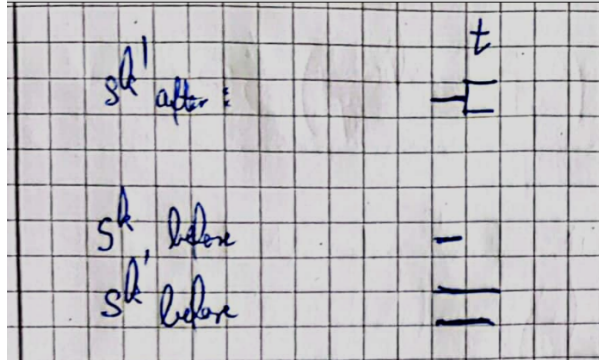 t
s^k' after :
s^k before
s^k' before